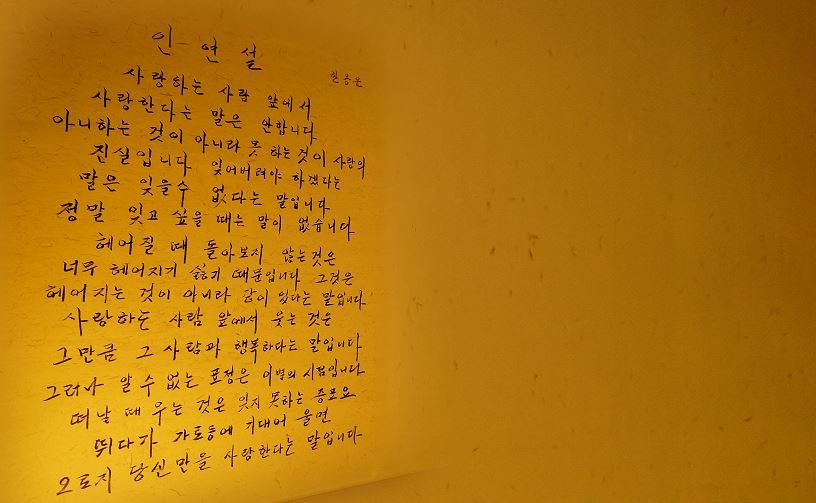 인 연 설
한용운
사랑하는 사람 앞에서
사랑한다는 말은 안합니다
아니하는 것이 아니라 못 하는 것이 사랑의
진실입니다 잊어버려야 하겠다는
말은 잊을수 없다는 말입니다
정말 잊고 싶을 때는 말이 없습니다
헤어질 때 돌아보지 않는것은
너무 헤어지기 싫기 때문입니다 그것은
헤어지는 것이 아니라 같이 있다는 말입니다
사랑하는 사람 앞에서 웃는 것은
그만큼 그 사람과 행복하다는 말입니다
그러나 알 수 없는 표정은 이별의 시점입니다
떠날 때 우는 것은 잊지 못하는 증표요
뛰다가 가로등에 기대어 울면
오로지 당신만을 사랑한다는 말입니다